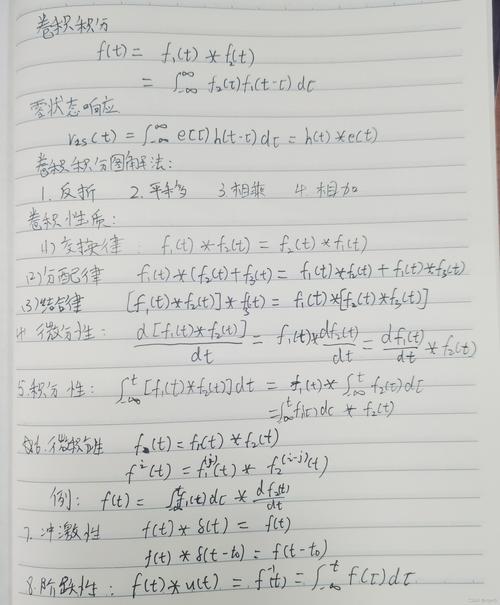 卷积积分
f(t) = f₁(t) * f₂(t)
= ∫_{-∞}^{∞} f₂(τ) f₁(t-τ) dτ
零状态响应
r_{zs}(t) = ∫_{-∞}^{∞} e(τ) h(t-τ) dτ = h(t) * e(t)
卷积积分图解法:
1. 反折 2. 平移 3. 相乘 4. 相加
卷积性质:
(1) 交换律: f₁(t) * f₂(t) = f₂(t) * f₁(t)
(2) 分配律 f₁(t) * (f₂(t) + f₃(t)) = f₁(t) * f₂(t) + f₁(t) * f₃(t)
(3) 结合律 [f₁(t) * f₂(t)] * f₃(t) = f₁(t) * [f₂(t) * f₃(t)]
4 微分性: d[f₁(t) * f₂(t)]/dt = f₁(t) * df₂(t)/dt = df₁(t)/dt * f₂(t)
5. 积分性: ∫_{-∞}^{t} [f₁(t) * f₂(t)] dt = f₁(t) * ∫_{-∞}^{t} f₂(τ) dτ
= ∫_{-∞}^{t} f₁(τ) dτ * f₂(t)
6. 微积分性 f(t) = f₁(t) * f₂(t)
f^{i}(t) = f₁^{(j)}(t) * f₂^{(i-j)}(t)
例: f(t) = ∫_{-∞}^{t} f₁(τ) dτ * df₂(t)/dt
7. 冲激性 f(t) * δ(t) = f(t)
f(t) * δ(t-t₀) = f(t-t₀)
8. 阶跃性: f(t) * u(t) = f^{-1}(t) = ∫_{-∞}^{t} f(τ) dτ